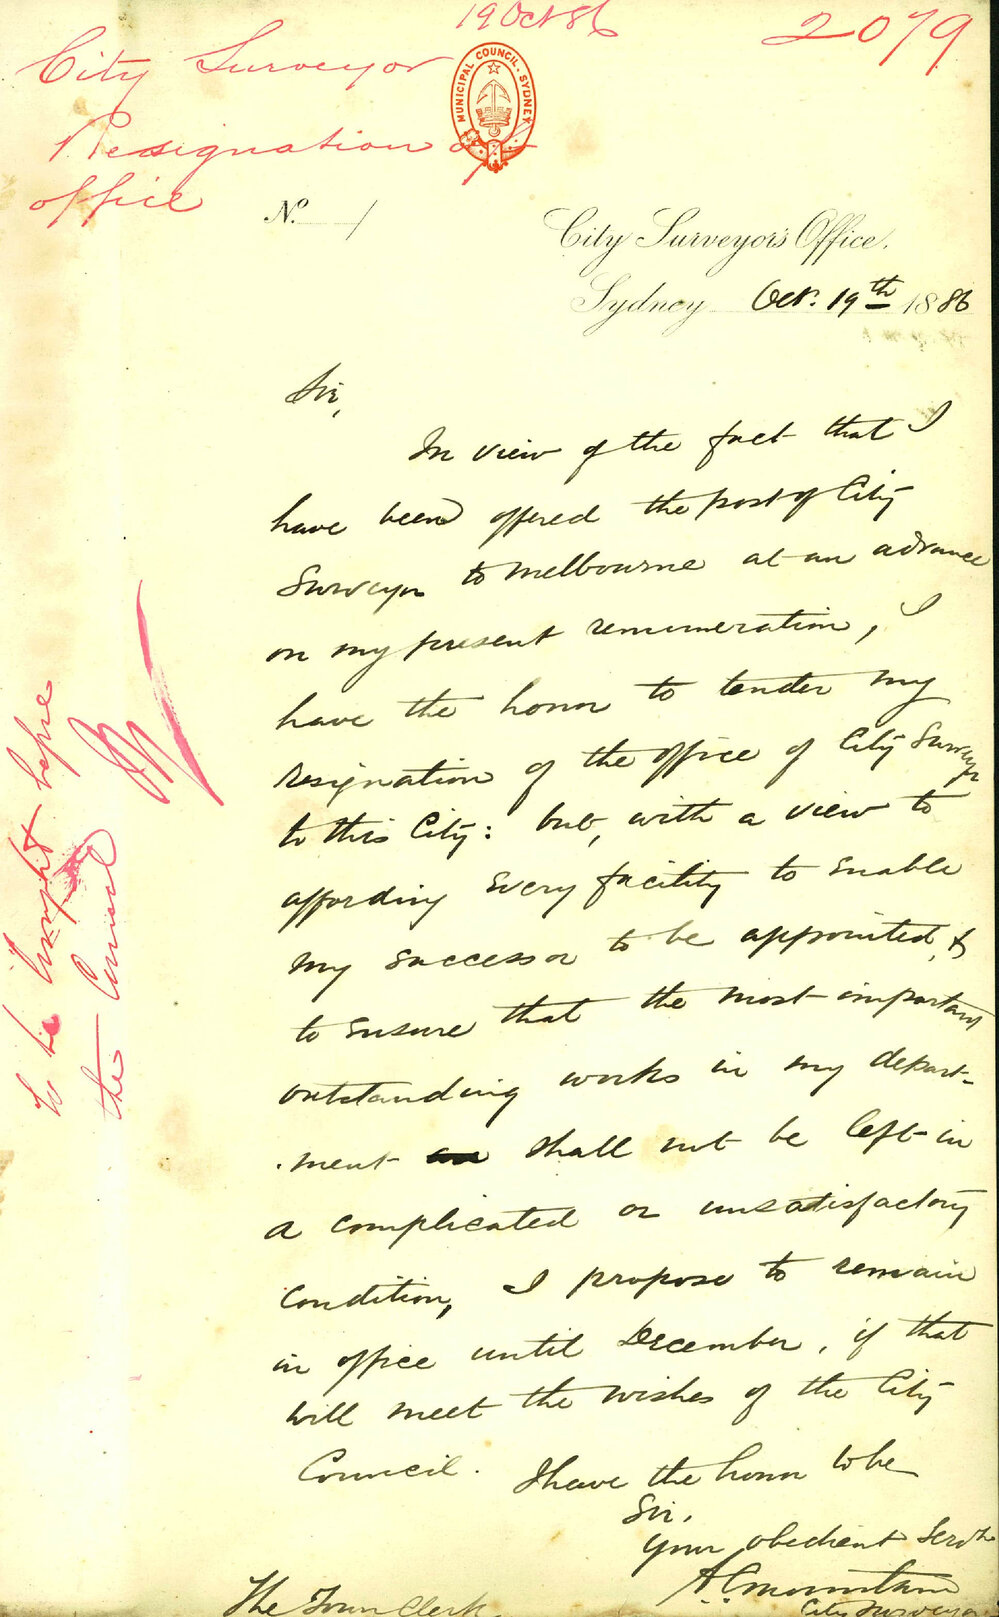 19 Oct 86
2079
City Surveyor
Resignation of
office
MUNICIPAL COUNCIL. SYDNEY
No. 1
City Surveyor's Office,
Sydney Oct. 19th 1886
Sir,
In view of the fact that I
have been offered the post of City
Surveyor to Melbourne at an advance
on my present remuneration, I
have the honor to tender my
resignation of the office of City Surveyor
to this City: but, with a view to
affording every facility to enable
my successor to be appointed, &
to ensure that the most important
outstanding works in my depart-
ment shall not be left in
a complicated or unsatisfactory
condition, I propose to remain
in office until December, if that
will meet the wishes of the City
Council. I have the honor to be
Sir,
Your obedient Servt
A C Mountain
City Surveyor
The Town Clerk
To be brought before
the Council